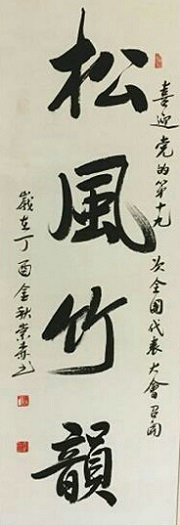 喜迎党的第十九次全国代表大會召開
松風竹韻
歲在丁酉金秋